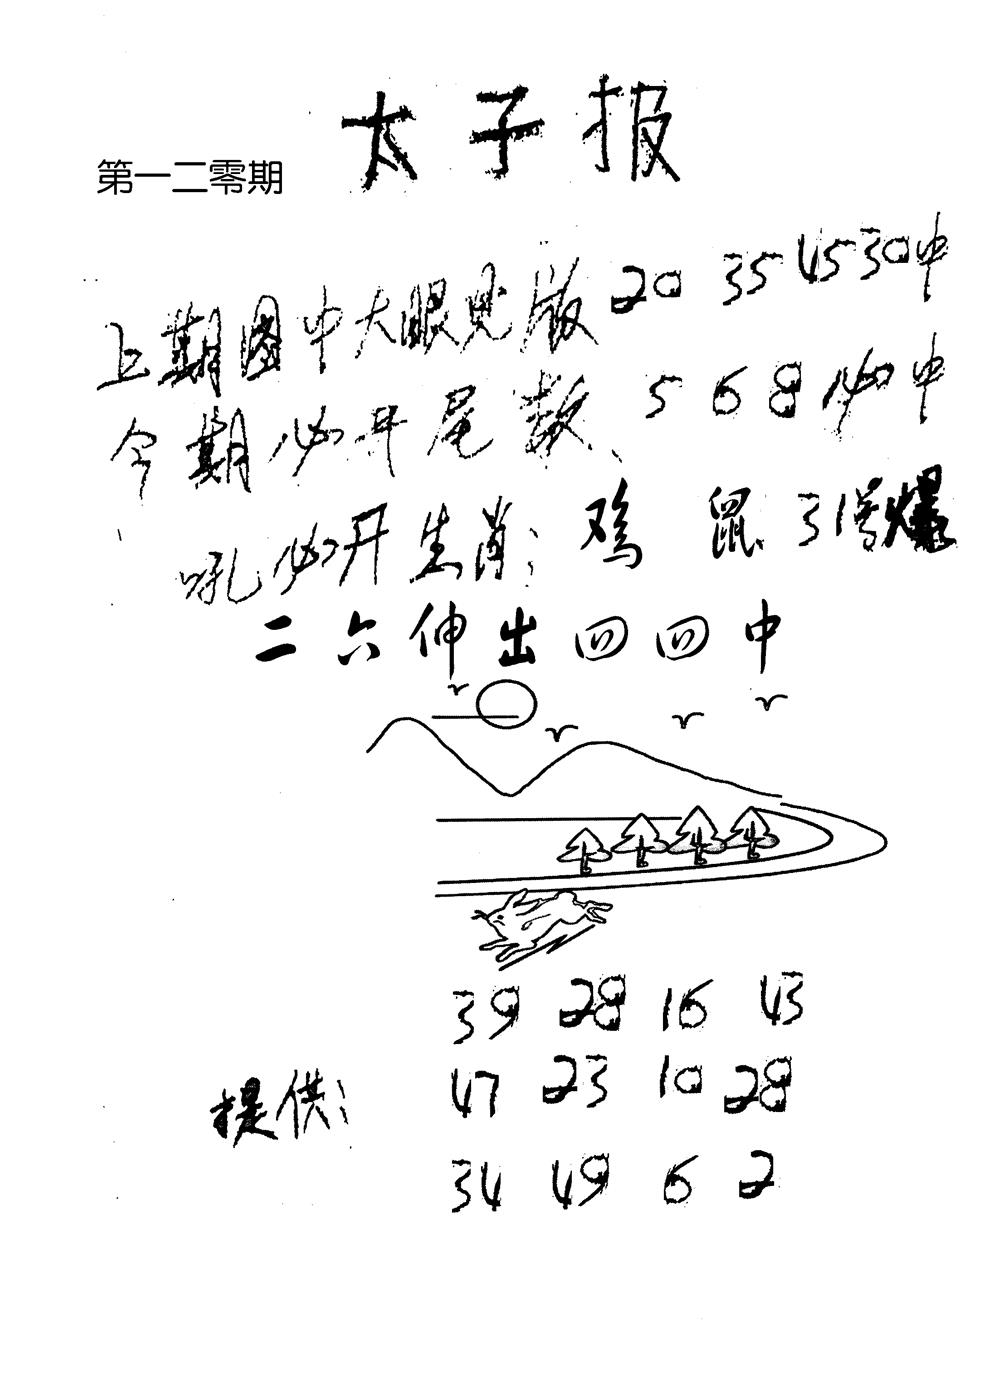 太子报
第一二零期
上期图中大眼见版 20 35 45 30中
今期必开尾数、5 6 8必中
吼必开生肖: 鸡 鼠 引爆
二六伸出四四中
39 28 16 43
提供: 47 23 10 28
34 49 6 2